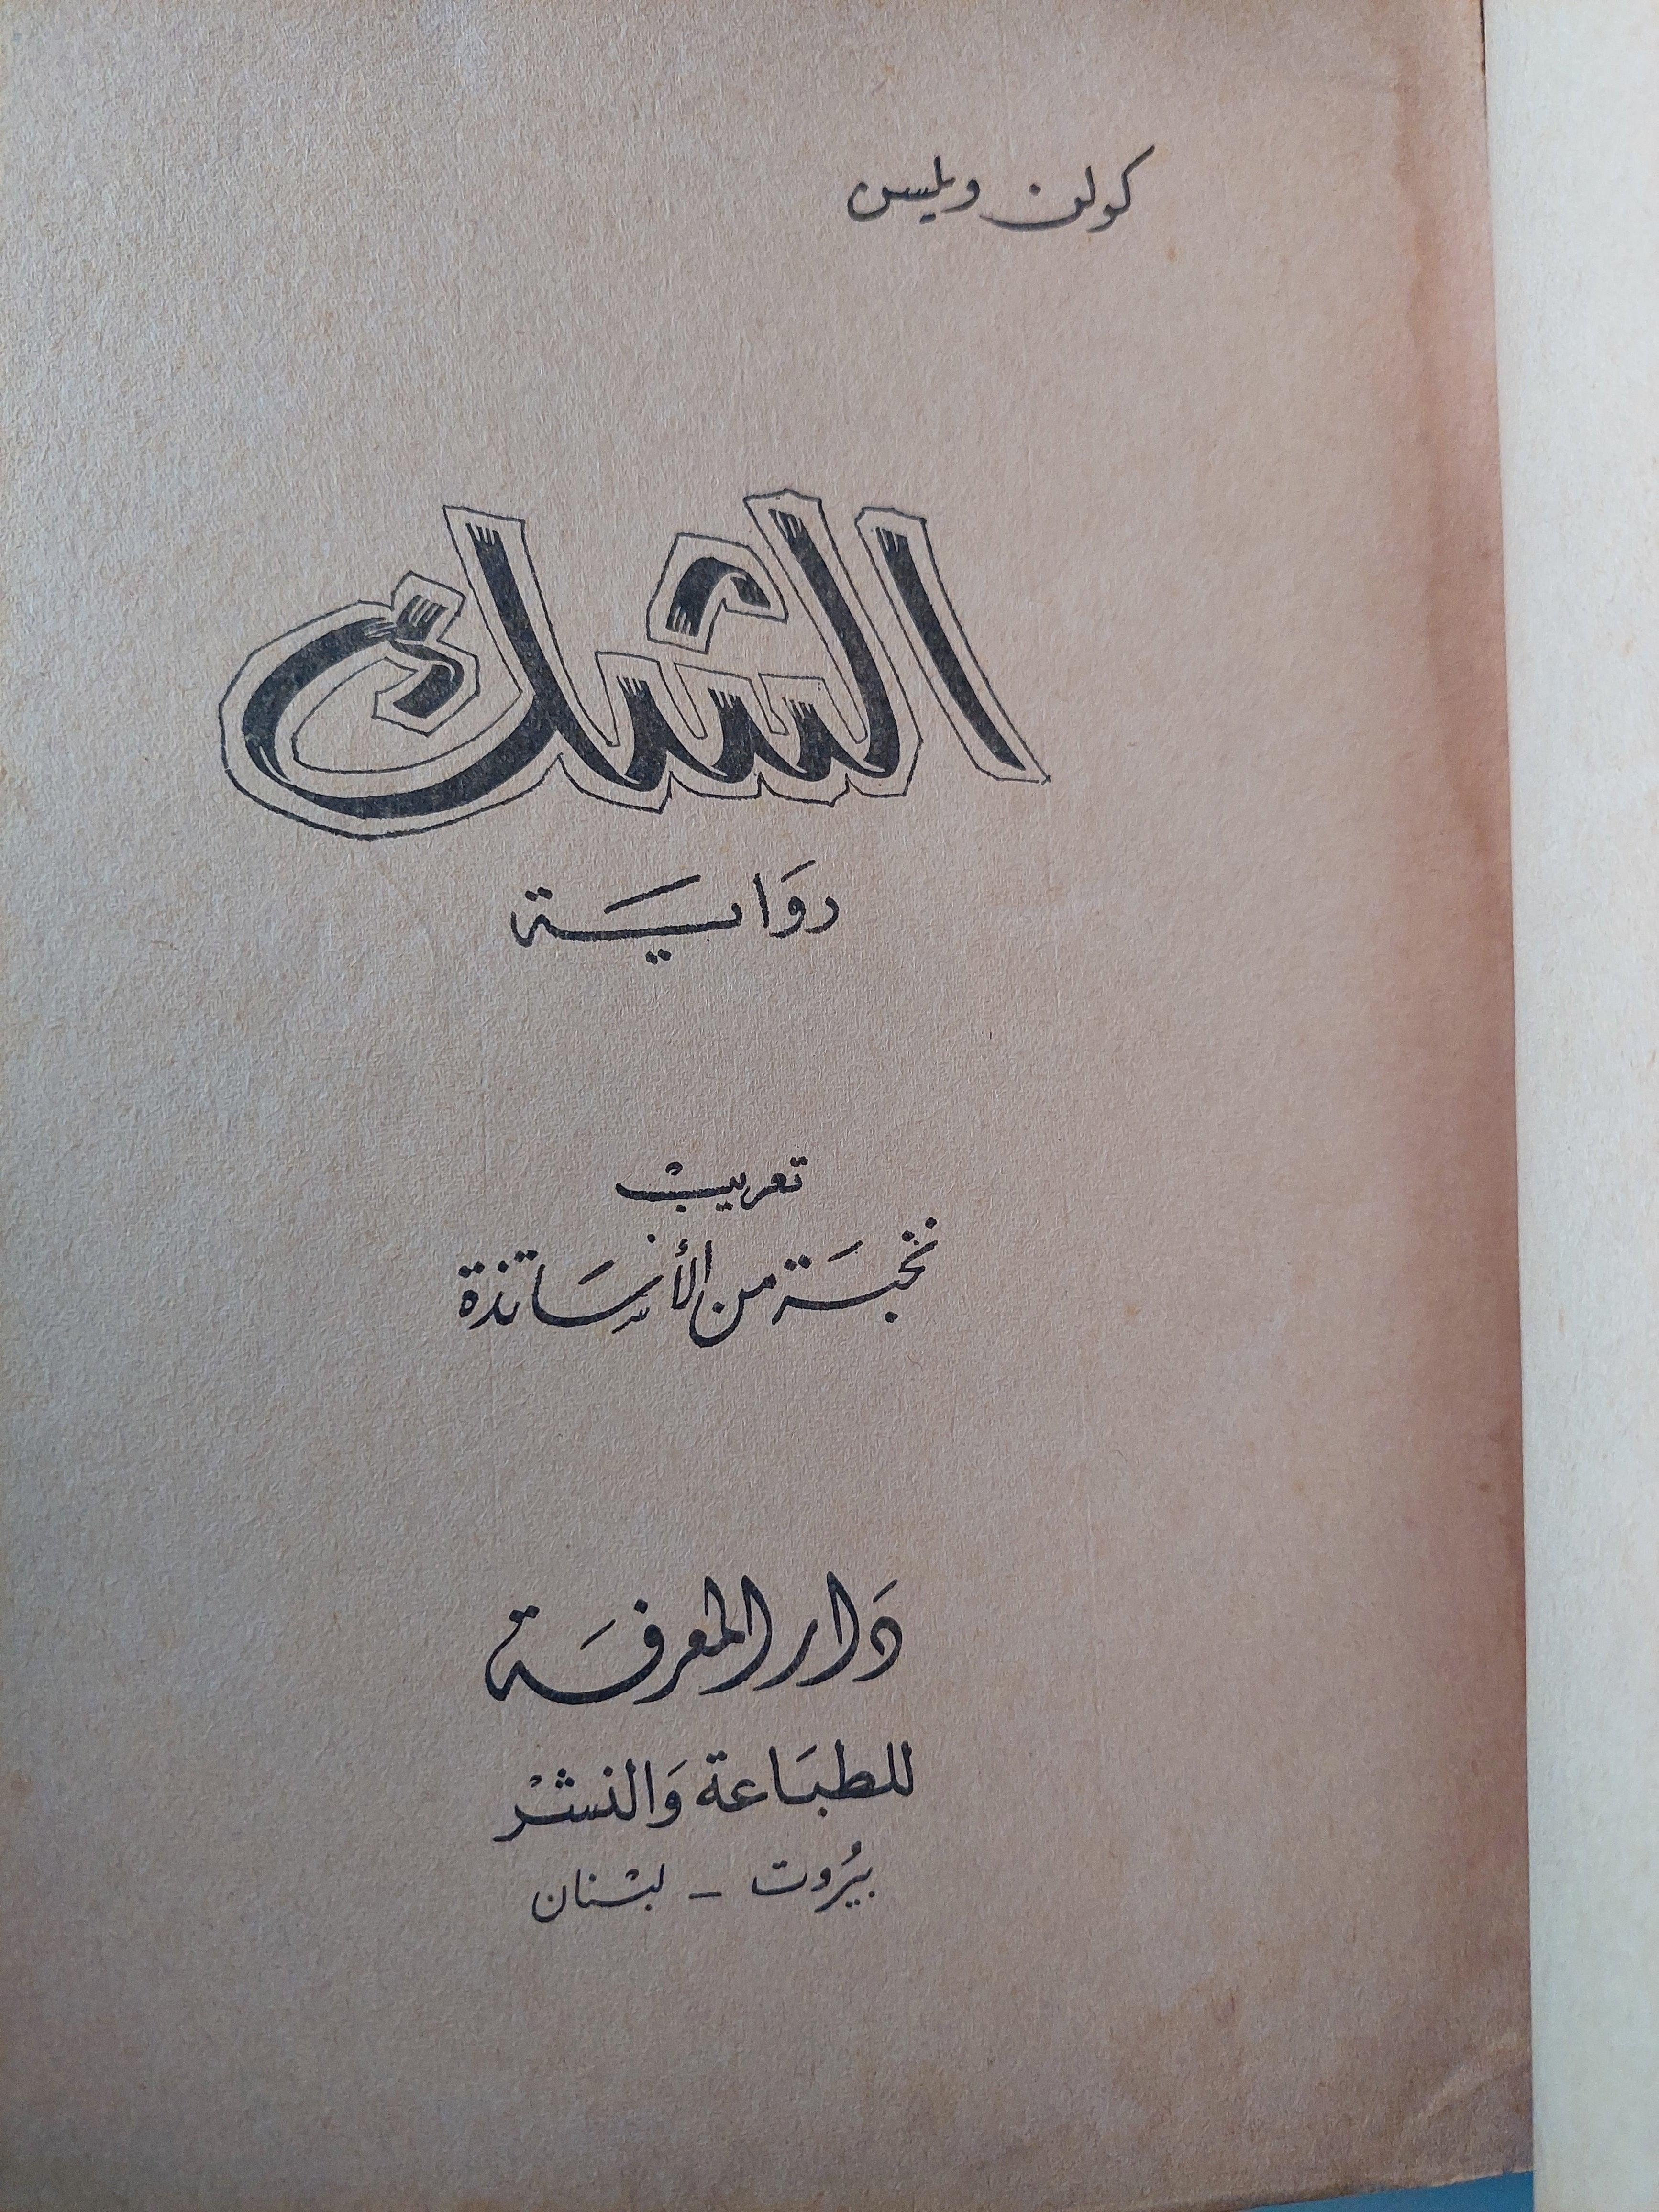 كولن ويلسن
الشك
رَوَايَة
تعريبْ
نخبَة من الأسَاتذة
دَار المعرفَة
للطبَاعة وَالنشْر
بيُروت - لبْنان